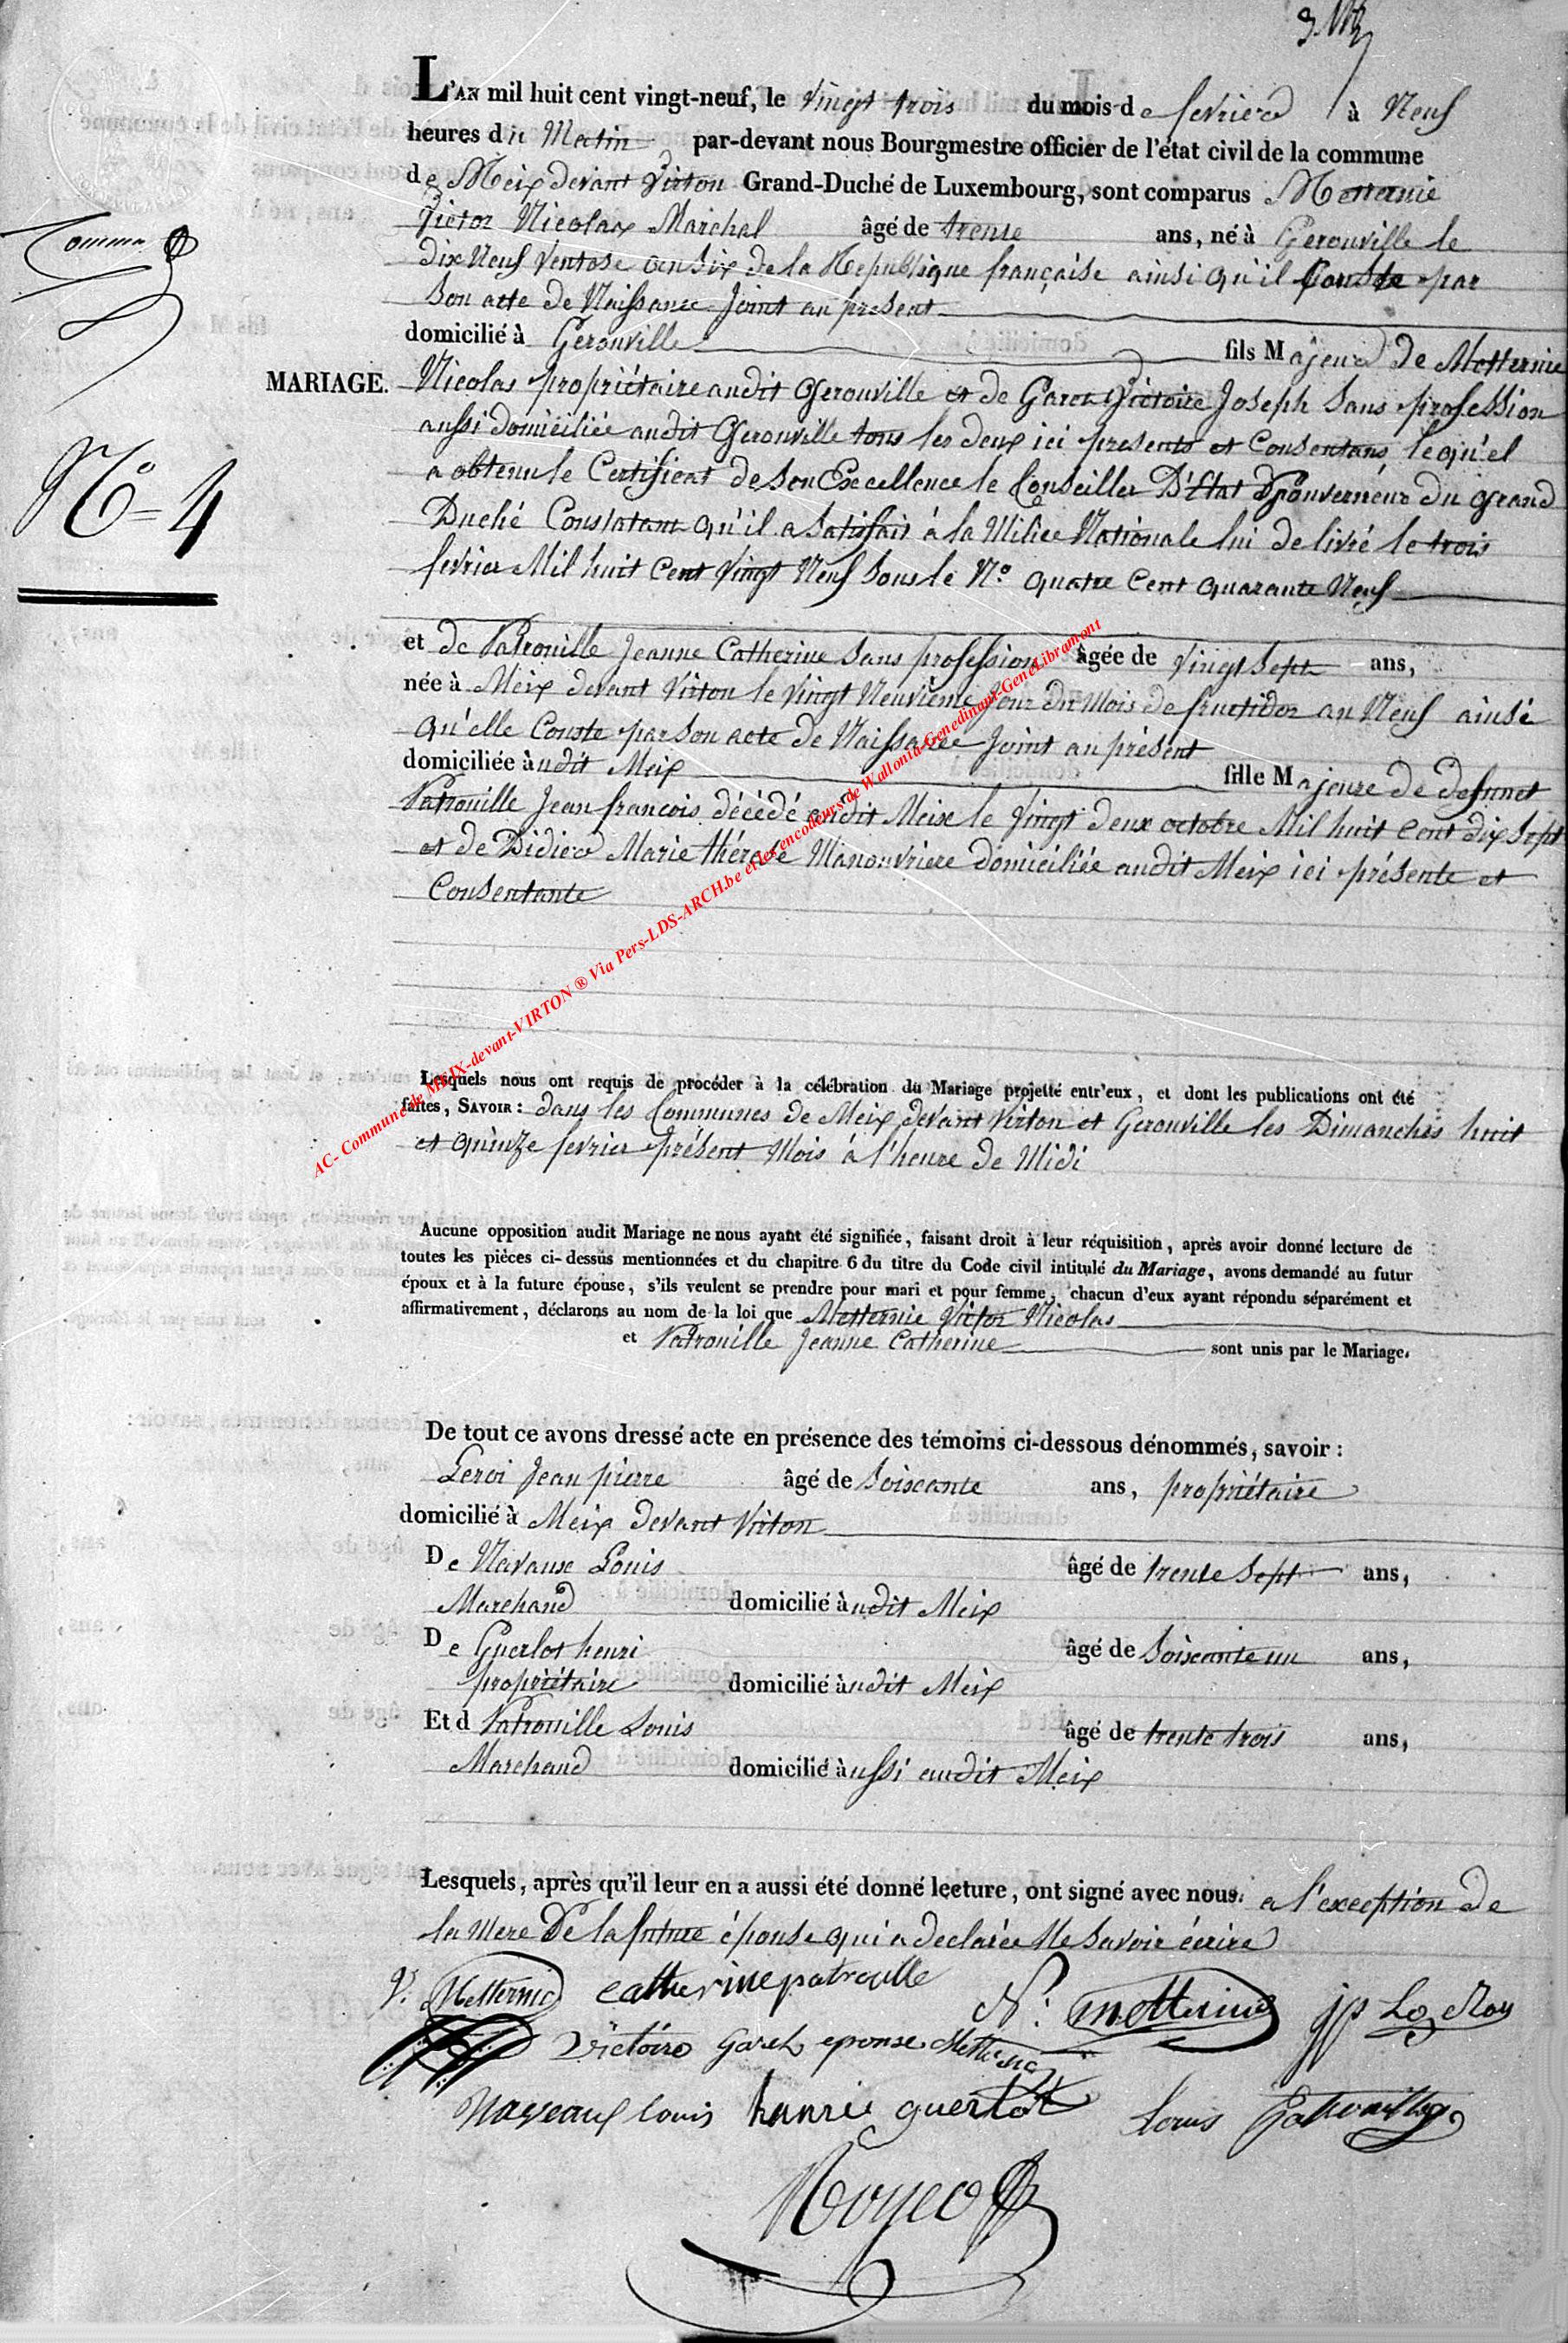 L'AN mil huit cent vingt-neuf, le Vingt trois du mois de fevrier à Neuf
heures du Matin par-devant nous Bourgmestre officier de l'état civil de la commune
de Meix devant Virton Grand-Duché de Luxembourg, sont comparus Metternie
Victor Nicolas Marchal âgé de trente ans, né à Gerouville le
dix Neuf Ventose an six de la Republique française ainsi qu'il Conste par
Son acte de Naissance Joint au present
domicilié à Gerouville fils Majeur de Metternie
MARIAGE.
Nicolas propriétaire audit Gerouville et de Garet Victoire Joseph Sans profession
aussi domiciliée audit Gerouville tous les deux ici presents et Consentans, lequ'el
a obtenu le Certificat de Son Excellence le Conseiller D'Etat Gouverneur du grand
Duché Constatant qu'il a Satisfait à la Milice Nationale lui delivré le trois
fevrier Mil huit Cent Vingt Neuf Sous le N.o quatre Cent quarante Neuf
N.o = 4
et de Patrouille Jeanne Catherine Sans profession âgée de Vingt Sept ans,
née à Meix devant Virton le Vingt Neuvième Jour du Mois de fructidor an Neuf ainsi
qu'elle Conste par Son acte de Naissance Joint au présent
domiciliée àudit Meix fille Majeure de defunct
Patrouille Jean francois décédé audit Meix le Vingt deux octobre Mil huit Cent dix Sept
et de Didier Marie thérese Manouvriere domiciliée audit Meix ici présente et
Consentante
AC- Commune de MEIX-devant-VIRTON ® Via Pers-LDS-ARCH.be et les encodeurs de Wallonia-Genedinant-GeneLibramont
Lesquels nous ont requis de procéder à la célébration du Mariage projetté entr'eux, et dont les publications ont été
faites, SAVOIR : dans les Communes de Meix devant Virton et Gerouville les Dimanches huit
et quinze fevrier présent Mois à l'heure de Midi
Aucune opposition audit Mariage ne nous ayant été signifiée, faisant droit à leur réquisition, après avoir donné lecture de
toutes les pièces ci-dessus mentionnées et du chapitre 6 du titre du Code civil intitulé du Mariage, avons demandé au futur
époux et à la future épouse, s'ils veulent se prendre pour mari et pour femme, chacun d'eux ayant répondu séparément et
affirmativement, déclarons au nom de la loi que Metternie Victor Nicolas
et Patrouille Jeanne Catherine sont unis par le Mariage.
De tout ce avons dressé acte en présence des témoins ci-dessous dénommés, savoir :
Leroi Jean pierre âgé de Soixante ans, propriétaire
domicilié à Meix devant Virton
De Navaux Louis âgé de trente Sept ans,
Marchand domicilié àudit Meix
De Guerlot henri âgé de Soixante un ans,
propriétaire domicilié àudit Meix
Et d Patrouille Louis âgé de trente trois ans,
Marchand domicilié àussi audit Meix
Lesquels, après qu'il leur en a aussi été donné lecture, ont signé avec nous. a l'exception de
la Mere De la future épouse qui a declarée Ne Savoir écrire
V. Metternic catherine patroulle N. metternie jp Le Roy
Victoire Garet epouse Metternic
Naveaux louis henrie guerlot Louis Patrouille